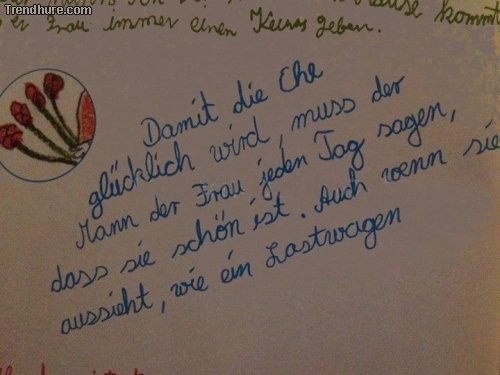 Trendhure.com
kommt
er Frau immer einen Kuss geben.
Damit die Ehe
glücklich wird, muss der
Mann der Frau jeden Tag sagen,
dass sie schön ist. Auch wenn sie
aussieht, wie ein Lastwagen